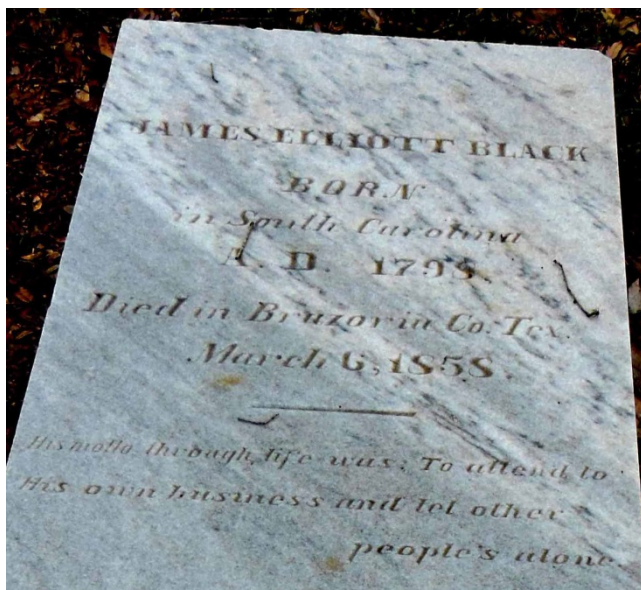 JAMES ELLIOTT BLACK
BORN
in South Carolina
A. D. 1798.
Died in Brazoria Co. Tex.
March 6, 1858.
His motto through life was: To attend to
His own business and let other
people's alone.